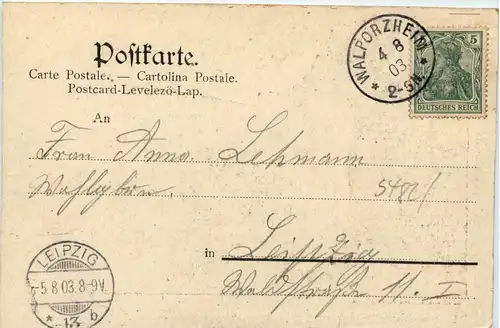 Postkarte.
Carte Postale. — Cartolina Postale.
Postcard-Levelezö-Lap.
WALPORZHEIM
4 8
03
* 2-3N. *
5
DEUTSCHES REICH
An
Frau Anna Lehmann
5401/
in Leipzig
Waldstraße 11. I
LEIPZIG
-5.8.03.8-9V.
* 13 b